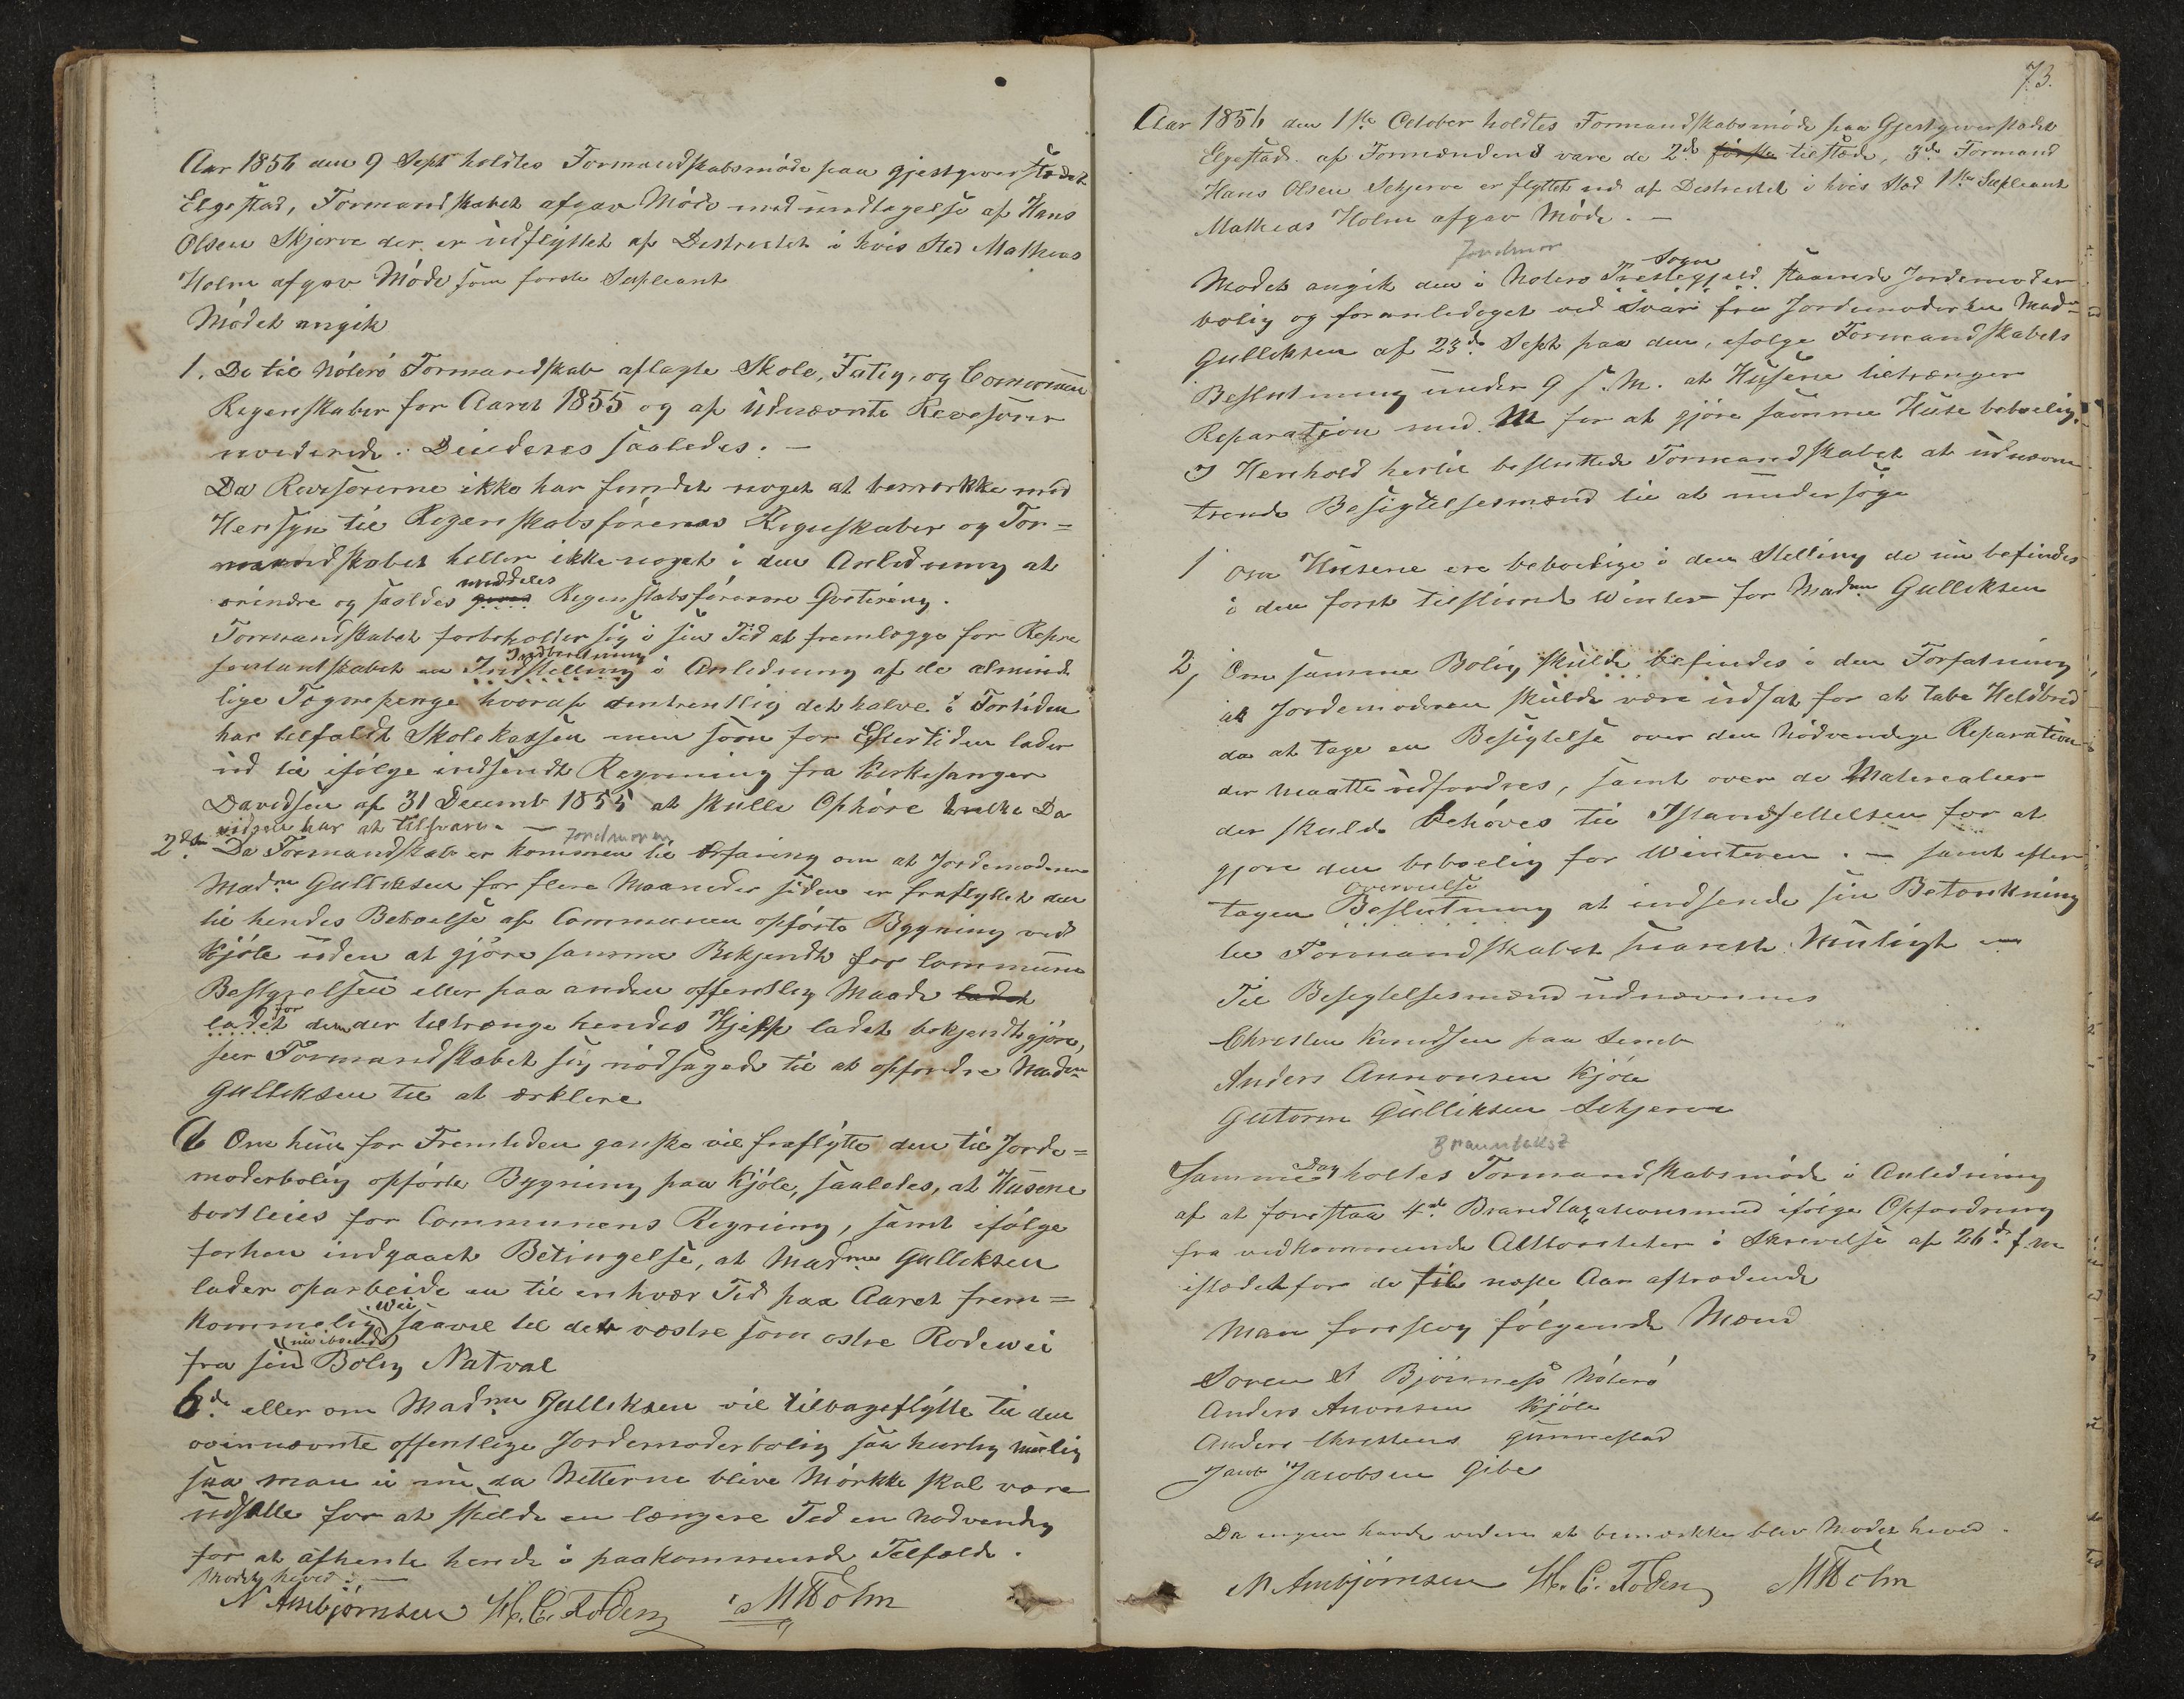 Aar 1856 den 9 Sept holdtes Formandskabsmöde paa gjestgiverstedet
Elgestad, Formandskabet afgav Möde med undtagelse af Hans
Olsen Skjerve der er udflyttet af Destrectet i hvis Sted Mathias
Holm afgav Möde som forste Supleant
Mödet angik
1. De til Nöterö Formandskab aflagte Skole, Fatig, og Commune
Regenskaber for Aaret 1855 og af udnævnte Revesorer
reviderede. Deciederes saaledes: —
Da Revisorerne ikke har fundet noget at bemærkke med
Hensyn til Regenskabsförernes Regnskaber og For=
mandskabet heller ikke noget i den Anledning at
erindre og saaledes meddeles gives Regenskabsförerne Qvitering.
Formandskabet forbeholder sig i sin Tid at fremlægge for Repre
sentantskabet en Indberetning Indstelling i Anledning af de almind
lige Tegnepenge hvoraf omtrentlig det halve i Fortiden
har tilfaldt Skolekassen men som for Eftertiden lader
ud til ifölge indsendt Regning fra Kirkesanger
Davidsen af 31 Decemb 1855 at skulle Ophöre hvilke Da
vidsen har at tilsvare. — Jordmoren
2det Da Formandskab er kommen til Erfaring om at Jordemoderen
Madme Gulliksen for flere Maaneder siden er fraflyttet den
til hendes Beboelse af Communen opförte Bygning ved
Kjöle uden at gjöre samme Bekjendt for Commune
Bestyrelsen eller paa anden offentlig Maade ladet
ladet for dem der tiltrænge hendes Hjelp ladet bekjendtgjöre,
seer Formandskabet sig nödsaget til at opfordre Madme
Gulliksen til at erklere
a Om hun for Fremtiden ganske vil fraflytte den til Jorde=
moderbolig opförte Bygning paa Kjöle, saaledes, at Husene
bortleies for Communens Regning, samt ifölge
forhen indgaaet Betingelse, at Madme Gulliksen
lader oparbeide en til enhver Tid paa Aaret frem=
kommelig Wei saavel til det vestre som ostre Rodewei
fra sin (nu iboende) Bolig Natval
b de eller om Madme Gulliksen vil tilbageflytte til den
ovennævnte offentlige Jordemoderbolig saa hurtig mulig
saa man ei nu da Netterne blive Mörkke skal være
udsatte for at spilde en længere Tid en nodvendig
for at afhente hende i paakommende Tilfælde.
Modet hevet : —
N Ambjörnsen H. C. Foden M Holm
73.
Aar 1856 den 1ste October holdtes Formandskabsmöde paa Gjestgiverstedet
Elgestad. af Formændene vare de 2de förste tilstede, 3de Formand
Hans Olsen Schjerve er flyttet ud af Destrectet i hvis Sted 1ste Supleant
Mathias Holm afgav Möde. —
Jordmor
Modet angik den i Noterö Sogn Prestegjeld staaende Jordemoder
bolig og foranlediget ved Svar fra Jordemoderen Madme
Gulliksen af 23de Sept paa den, ifölge Formandskabets
Beslutning under 9 s. M. at Husene tiltrænger
Reparation med M for at gjöre samme Huse beboelig.
I Henhold hertil besluttede Formandskabet at udnevne
trende Besigtelsesmænd til at undersöge
1 om Husene ere beboelige i den Stelling de nu befindes
i den forst tilstundende Winter for Madme Gulliksen
2, Om samme Bolig skulde befindes i den Forfatning
at Jordemoderen skulde være udsat for at tabe Heldbred
da at tage en Besigtelse over den Nödvendige Reparation
der maatte udfordres, samt over de Materealier
der skulde Behöves til Istandsettelsen for at
gjore den beboelig for Winteren. — samt efter
tagen Overveielse Beslutning at indsende sin Betænkning
til Formandskabet snarest Muligt —
Til Besigtelsesmænd udnævnes
Christen Knudsen paa Semb
Anders Annonsen Kjöle
Gutorm Gulliksen Schjerve
Branntakst
Samme Dag holtes Formandskabsmöde i Anledning
af at foreslaa 4de Brandtaxationsmænd ifölge Opfordring
fra vedkommende Autoriteter i Skrivelse af 26de f. m
istedetfor de til neste Aar aftrædende
Man foreslog fölgende Mænd
Soren A Björnness Nöterö
Anders Anonsen Kjöle
Anders Christens Gunnestad
Jacob Jacobsen Gibe
Da ingen havde videre at bemærkke blev Modet hevet.
N Ambjörnsen H. C. Foden M Holm